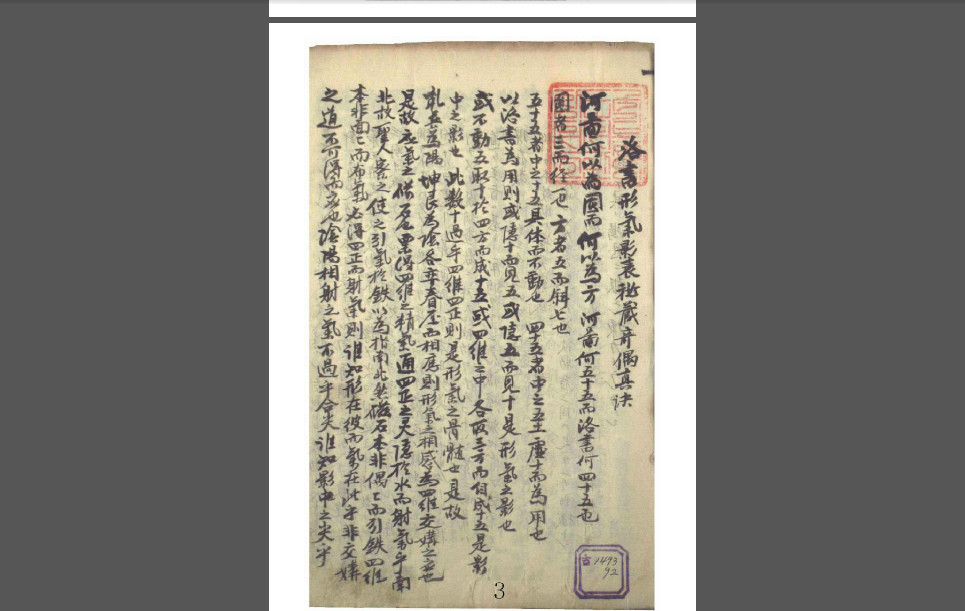 洛書形氣影表秘藏奇偶真訣
河圖何以為圓而何以為方河圖何五十五而洛書何四十五也
圓者三而徑一也方者五而斜七也
五十五者中之十五具体而不動也四十五者中之五土虛十而為用也
以洛書為用則或隱十而見五或隱五而見十是形氣之影也
或不動五取十於四方而成十五或四維之中各取三方而自成十五是影
中之影也此數十過乎四維四正則是形氣之骨髓也是故
乾巽為陽坤艮為陰各弃春屋而相應則形氣之相感為四維交媾之也
是故應氣之磁石稟得四維之精氣通四正之灵隱於水而射氣乎南
北故聖人察之使之引氣於鉄以為指南北然磁石本非偶之而引鉄四維
本非南之而布氣必得四正而射氣則誰知形在彼而氣在此乎非交媾
之道不可得而求也陰陽相射之氣不過乎合矣誰知影中之矣乎
3
古1493
92